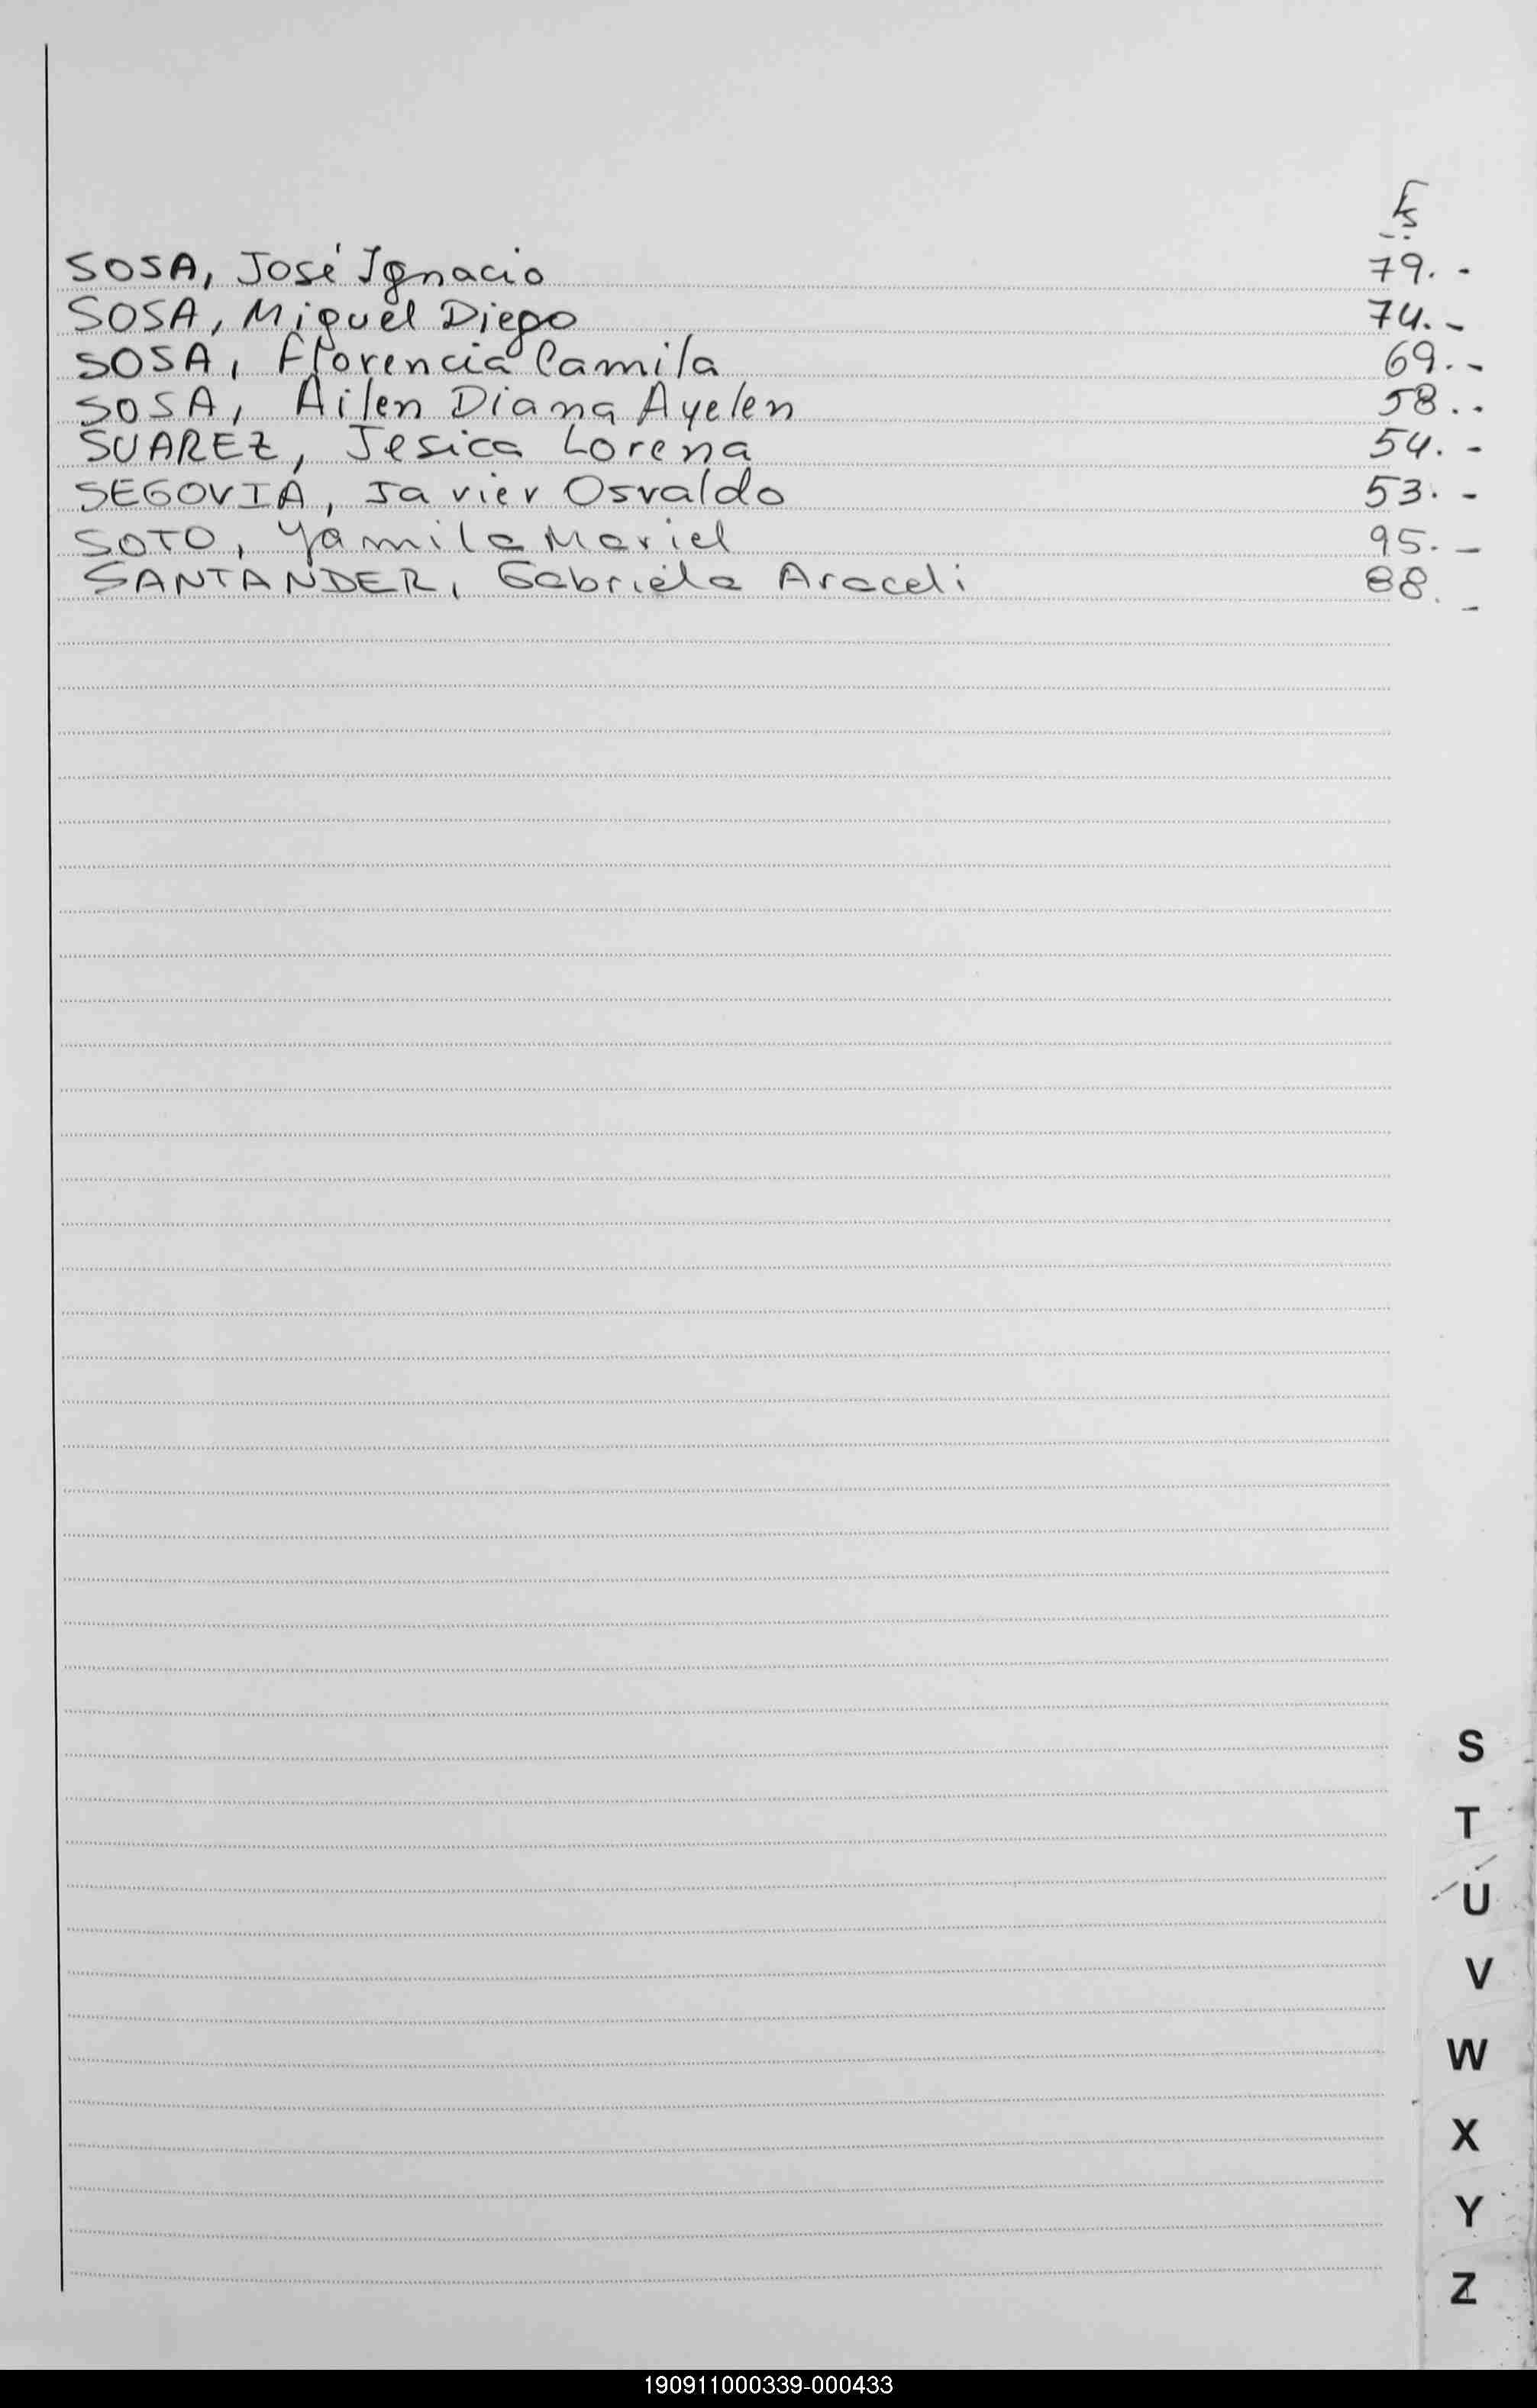 Fs
SOSA, José Ignacio 79.-
SOSA, Miguel Diego 74.-
SOSA, Florencia Camila 69.-
SOSA, Ailen Diana Ayelen 58.-
SUAREZ, Jesica Lorena 54.-
SEGOVIA, Javier Osvaldo 53.-
SOTO, Yamila Mariel 95.-
SANTANDER, Gabriela Araceli 88.-
S
T
U
V
W
X
Y
Z
190911000339-000433